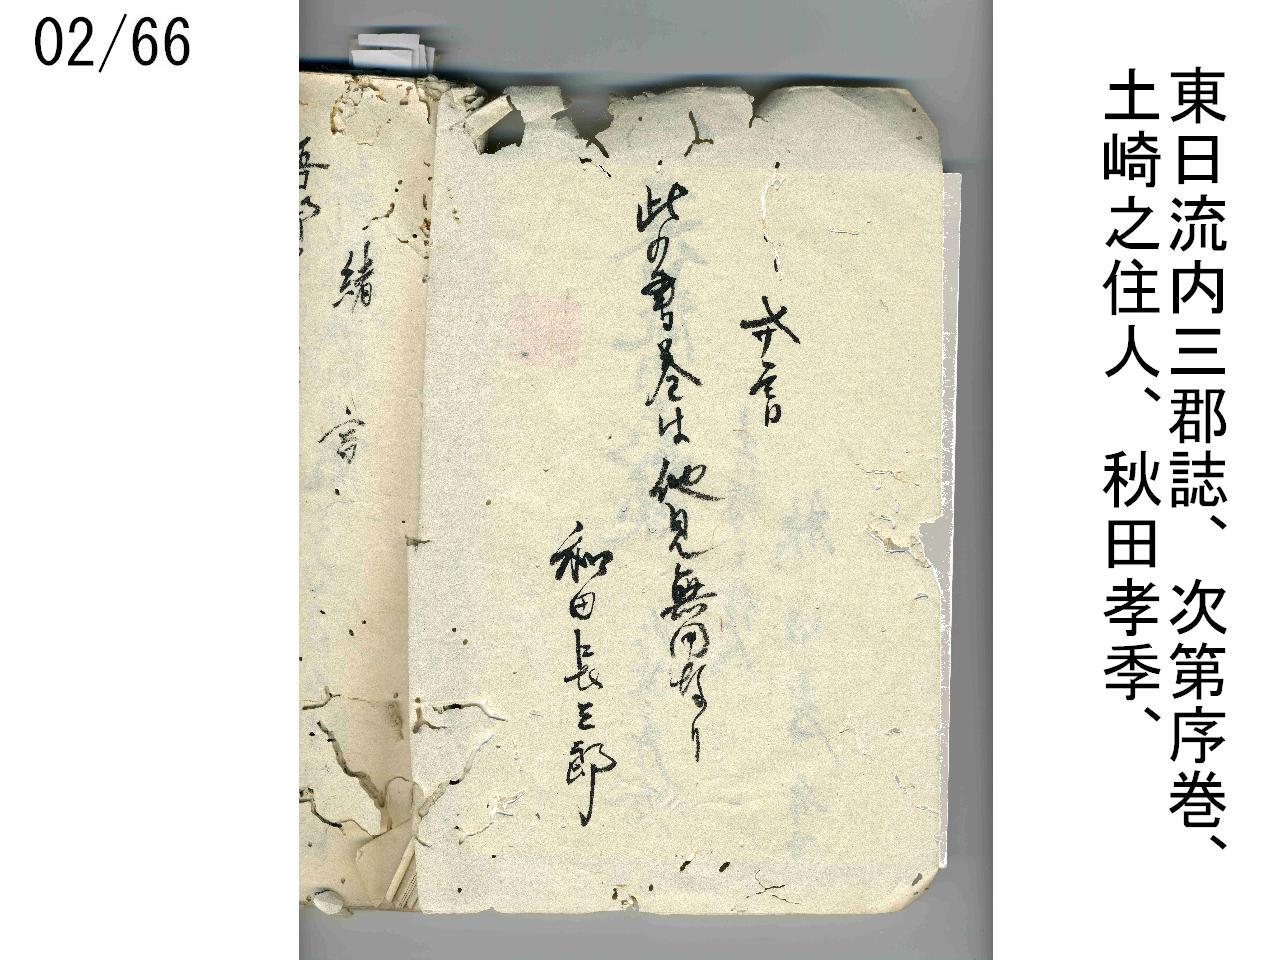 02/66
東日流内三郡誌、次第序巻、
土崎之住人、秋田孝季、
戒言
此の書巻は他見無用なり
和田長三郎
緒言